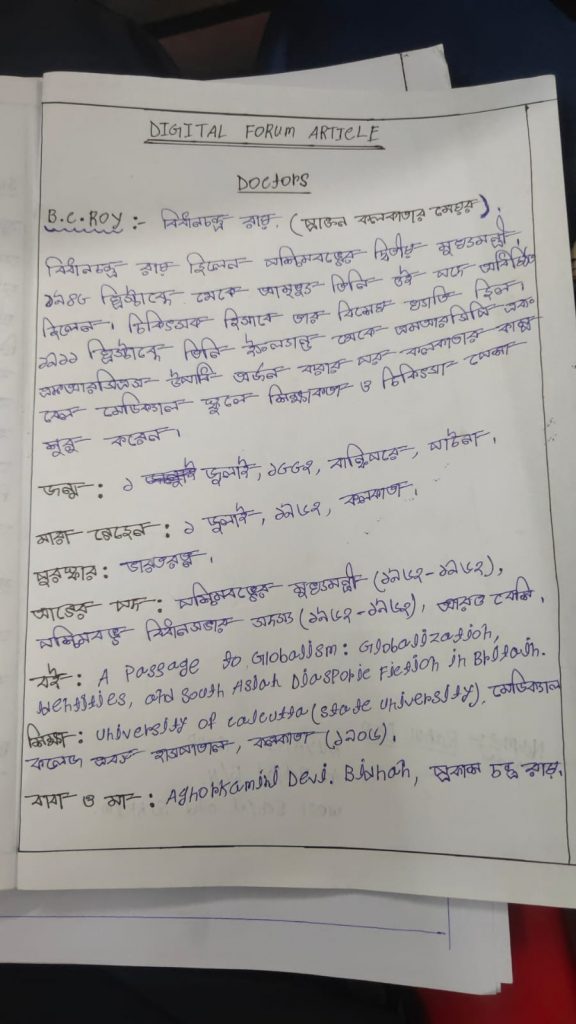 DIGITAL FORUM ARTICLE
DOCTORS
B.C.ROY :- বিধানচন্দ্র রায়. (প্রাক্তন কলকাতার মেয়র).
বিধানচন্দ্র রায় ছিলেন পশ্চিমবঙ্গের দ্বিতীয় মুখ্যমন্ত্রী.
১৯৪৮ খ্রিস্টাব্দে থেকে আমৃত্যু তিনি ওই পদে অধিষ্ঠিত
ছিলেন। চিকিৎসক হিসাবে তার বিশেষ খ্যাতি ছিল।
১৯১১ খ্রিস্টাব্দে তিনি ইংল্যান্ড থেকে এমআরসিপি এবং
এফআরসিএস উপাধি অর্জন করার পর কলকাতার ক্যাম্প
বেল মেডিক্যাল স্কুলে শিক্ষকতা ও চিকিৎসা পেশা
শুরু করেন।
জন্ম : ১ জুলাই, ১৮৮২, বাঙ্কিপুরে, পাটনা।
মারা গেছেন : ১ জুলাই, ১৯৬২, কলকাতা।
পুরস্কার : ভারতরত্ন।
আগের পদ : পশ্চিমবঙ্গের মুখ্যমন্ত্রী (১৯৫২-১৯৬২),
পশ্চিমবঙ্গ বিধানসভার সদস্য (১৯৫২-১৯৬২), আরও বেশি.
বই : A Passage to Globalism: Globalization,
Identities, and South Asian Diasporic Fiction in Britain.
শিক্ষা : University of calcutta (state university), মেডিক্যাল
কলেজ এবং হাসপাতাল, কলকাতা (১৯০৬).
বাবা ও মা : Aghorkamini Devi. Bidhan, প্রকাশ চন্দ্র রায়.